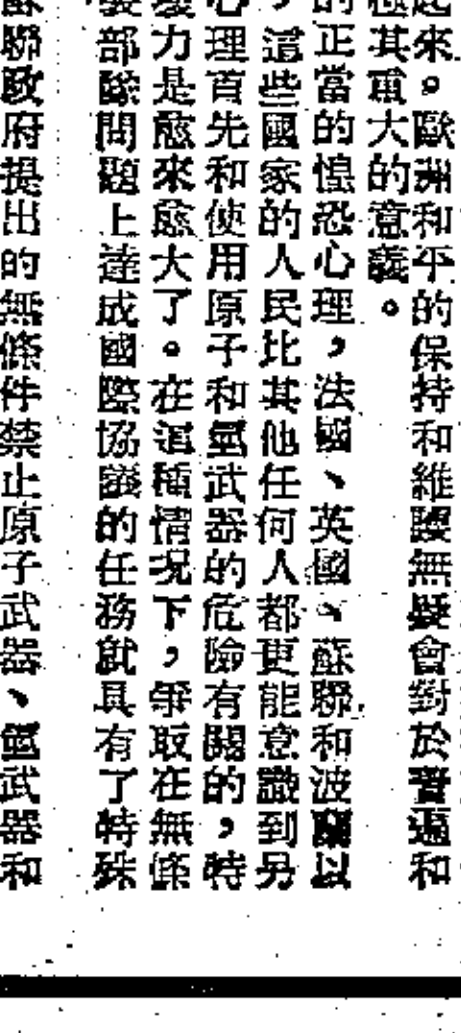 起來。歐洲和平的保持和維護無疑會對於普遍和
極其重大的意義。
的正當的惶恐心理,法國、英國、蘇聯和波蘭以
,這些國家的人民比其他任何人都更能意識到另
心理首先和使用原子和氫武器的危險有關的,特
發力是愈來愈大了。在這種情况下,爭取在無條
裝部隊問題上達成國際協議的任務就具有了特殊
蘇聯政府提出的無條件禁止原子武器、氫武器和